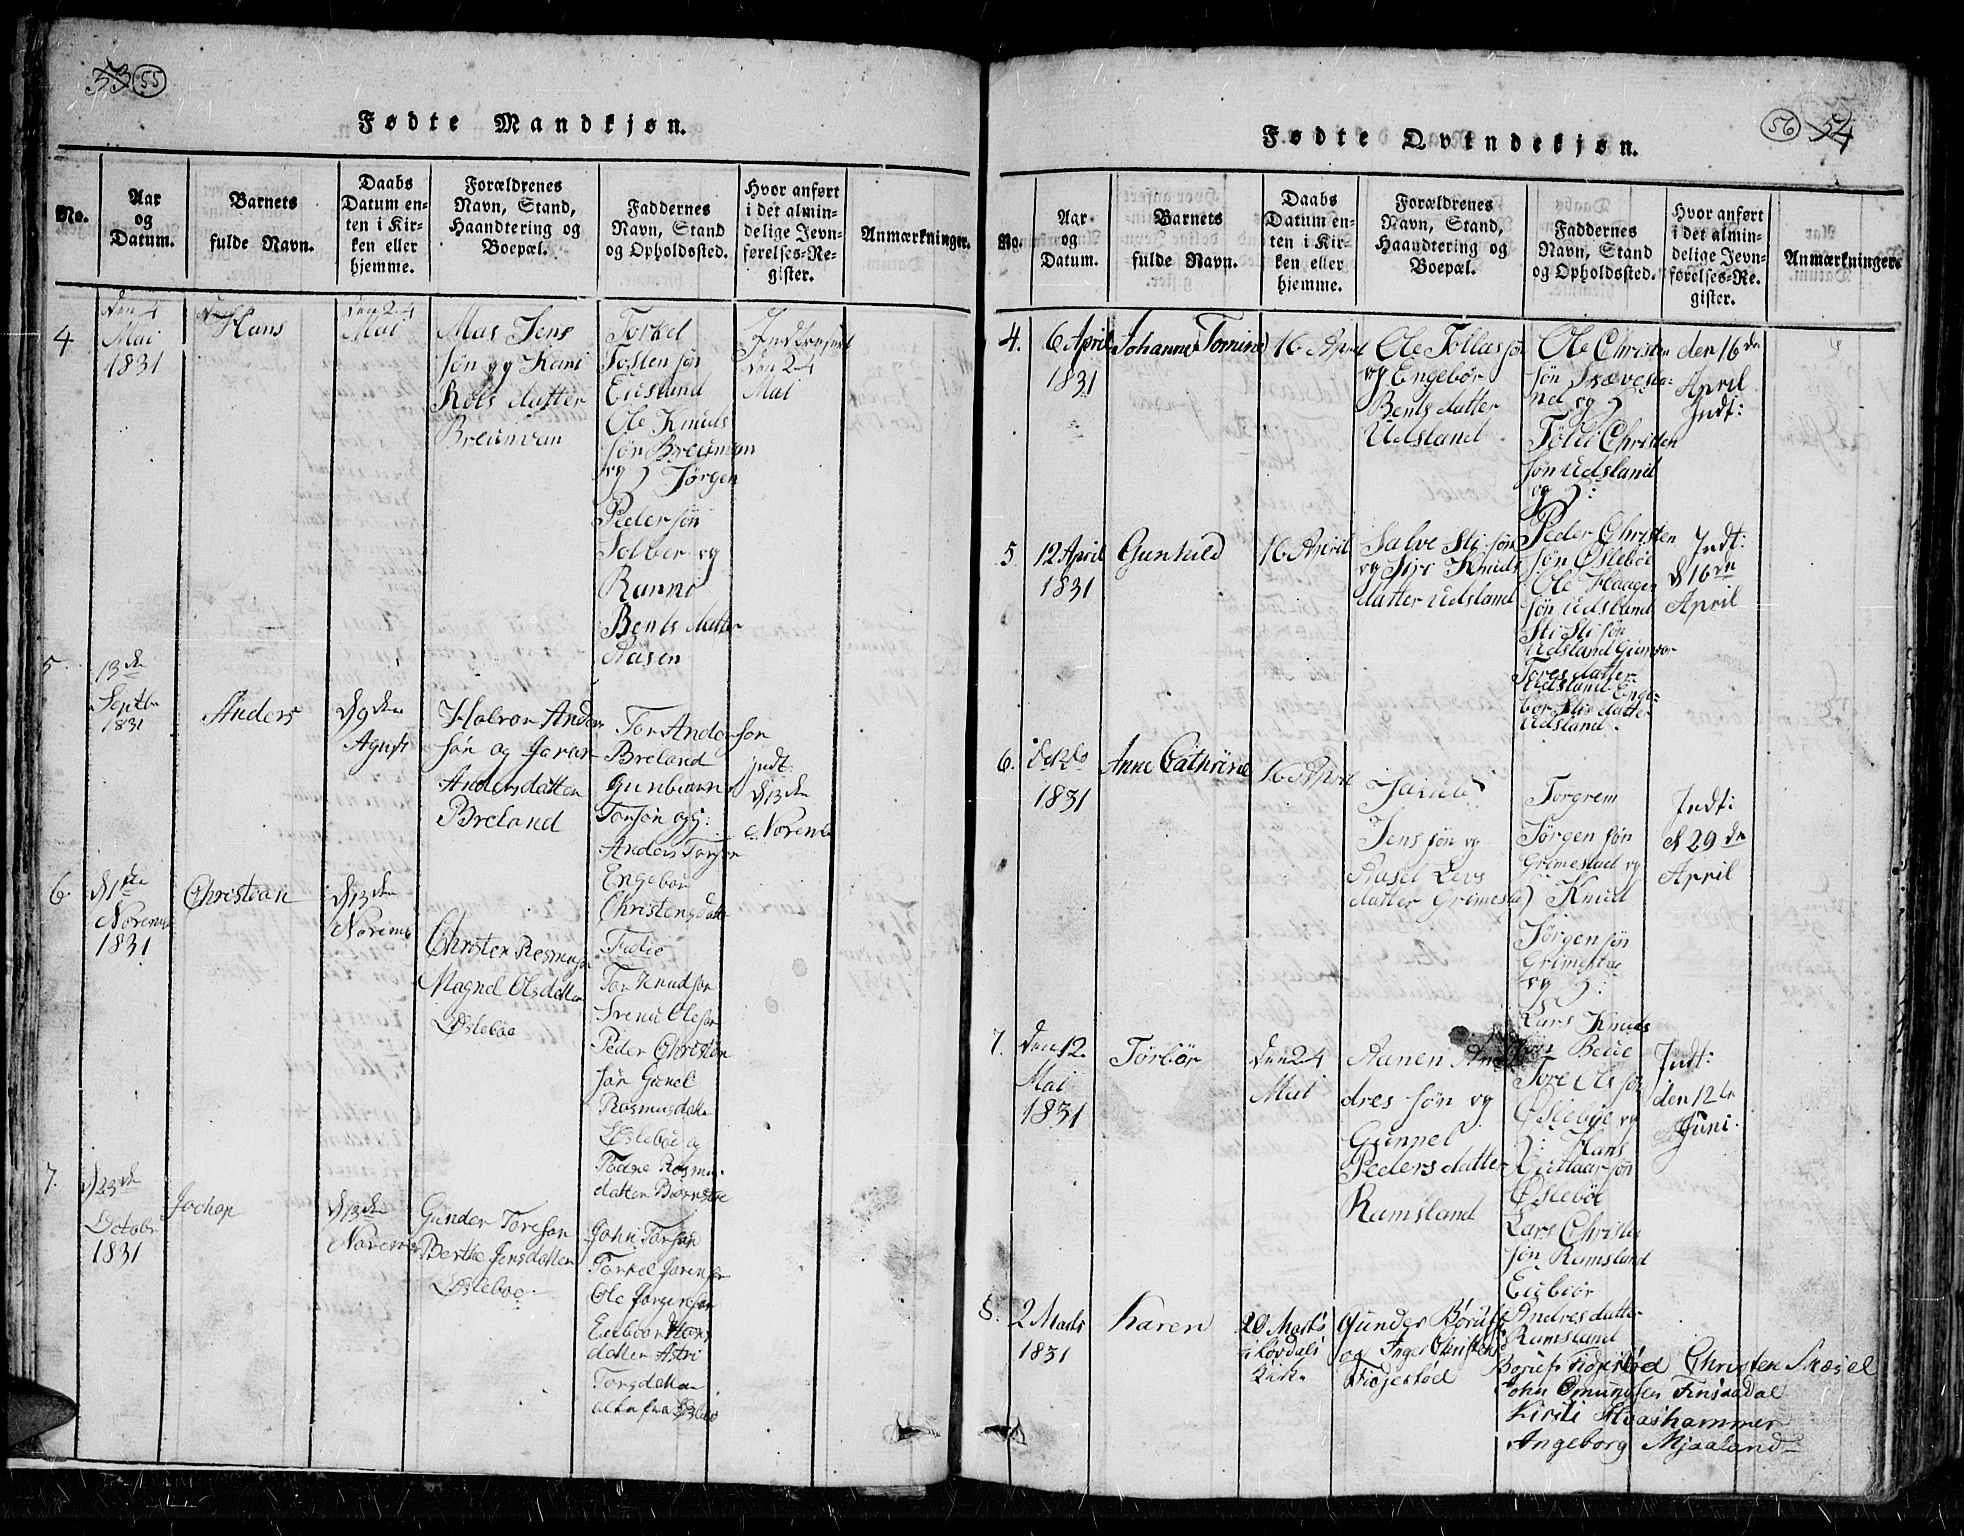 53 55
Fødte Mandkjøn.
No.
Aar
og
Datum.
Barnets
fulde Navn.
Daabs
Datum en-
ten i Kir-
ken eller
hjemme.
Forældrenes
Navn, Stand,
Haandtering og
Boepæl.
Faddernes
Navn, Stand
og Opholdssted.
Hvor anført
i det almin-
delige Jevn-
førelses-Re-
gister.
Anmærkninger.
4
den 4
Mai
1831
Hans
den 24
Mai
Mas Jens
søn og Kani
Rolsdatter
Breiinvan
Torkel
Tosten søn
Eidsland
Ole Knuds
søn Breiinvan
og Jørgen
Peder søn
Solber og
Ranno
Bents datter
Aasen
den 24
Mai
5
13de
Septbr
1831
Anders
d 9den
Agust
Halvor Anders
søn og Joran
Andersdatter
Breland
Tor Anderson
Breland
Gunbiørn
Torsøn og
Anders Torsøn
Engebor
Christensdatter
Indt:
d 13de
Novemb
6
d 1ste
Novemb
1831
Christian
d 13den
Novemb
Christen Rasmuson
Magnel Olsdatter
Øslebøe
Tor Knudson
Svenu Oleson
Peder Christen
søn Gunel
Rasmusdatter
Øslebøe og
Todne Rasmus
datter
7.
d 23de
Octobr
1831
Jochop
d 13den
Novemb
Gunder Toreson
Berthe Jensdatter
Øsleboe
John Torson
Torkel Jorenson
Ole Jørgenson
datter Astri
Torgdatter
alle fra Øslebø
56 54
Fødte Qvindekjøn.
No.
Aar
og
Datum.
Barnets
fulde Navn.
Daabs
Datum en-
ten i Kir-
ken eller
hjemme.
Forældrenes
Navn, Stand,
Haandtering og
Boepæl.
Faddernes
Navn, Stand
og Opholdssted.
Hvor anført
i det almin-
delige Jevn-
førelses-Re-
gister.
Anmærkninger
4.
6 April
1831
Johanne Tomine
16 April
Ole Tollassøn
og Engebør
Bents datter
Udsland
Ole Christen
søn
og
Tølu Christen
søn Udsland
og
den 16de
April
Indt:
5
12 April
1831
Gunhild
16 April
Salve Stissøn
og Siri Knuds
datter Udsland
Peder Christen
søn Øslebøe
Ole Haagen
søn Udsland
Sti Sti søn
Udsland Gunvor
Tores datter
Udsland Enge-
bor Stis datter
Udsland.
Indt:
d 16de
April
6.
1831
Anne Cathrine
16 April
Jakub
Jens søn og
Aasel Levs
datter Grimestad
Torgrem
Tørgen søn
Grimestad og
Knud
Jørgen søn
Grimestad
og
Lars Knuds
søn Beiie
Indt:
d 29de
April
7.
den 12
Mai
1831
Torbør
den 24
Mai
Aanen An
dres søn og
Gunnel
Peders datter
Ramsland
Tore Ols søn
Øslebøe og
Hans
Øslebøe
Lars Christen
søn Ramsland
Eiibiør
Andres datter
Ramsland
Indt:
den 12te
Juni.
8.
2 Marts
1831
Karen
20 Marts
i Løvdals
Kirk.
Gunder Børufs
og Inger Christens
Fidjestød
Boruf Fidjestød Christen
John Omundsen Finsaadal
Kirsti Haashammer
Angeborg Mjaaland